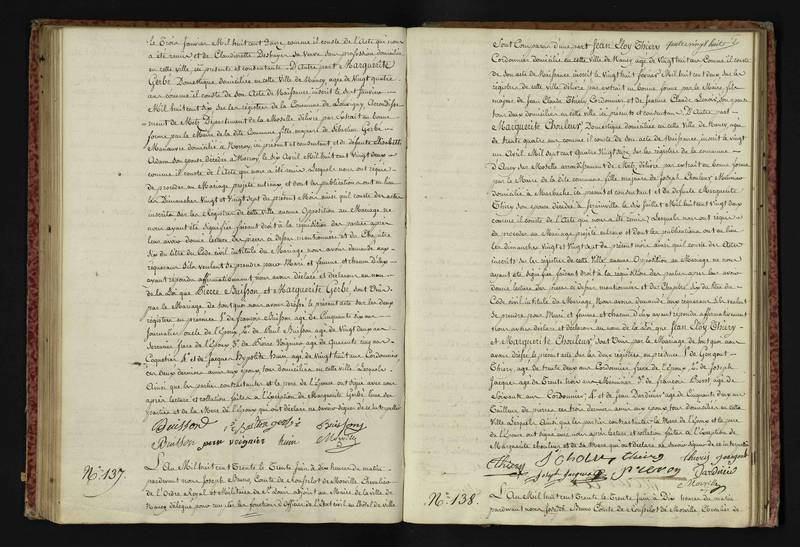 le Trois Janvier Mil huit cent Douze, comme il conste de l'acte qui nous
a été remis et de Claudinette Desboyer sa Veuve sans profession domiciliée
en cette ville, ici présente et consentante. D'Autre part Marguerite
Gerbé Domestique domiciliée en cette Ville de Nancy, âgée de Vingt quatre
ans comme il conste de son Acte de Naissance inscrit le six Janvier
Mil huit cent Six sur les registres de la Commune de Louvigny Arrondisse-
ment de Metz Département de la Moselle délivré par extrait en bonne
forme par le Maire de la dite Commune, fille majeure de Sébastien Gerbé
Manœuvre domicilié à Norroy, ici présent et consentant et de défunte Elisabeth
Adam son épouse décédée à Norroy le dix Avril Mil huit cent Vingt deux
comme il conste de l'acte qui nous a été remis. Lesquels nous ont requis
de procéder au Mariage projeté entr'eux et dont les publications ont eu lieu
les Dimanches Vingt et Vingt Sept du présent Mois ainsi qu'il conste des actes
inscrits sur les Registres de cette ville aucune Opposition au Mariage ne
nous ayant été signifiée, faisant droit à la réquisition des parties après
leur avoir donné lecture des pièces ci dessus mentionnées et du Chapitre
Six du titre du Code civil intitulé du Mariage nous avons demandé aux
requérans S'ils veulent se prendre pour Mari et femme et chacun d'eux
ayant répondu affirmativement nous avons déclaré et déclarons au nom
de la Loi que Pierre Buisson et Marguerite Gerbé Sont Unis
par le Mariage de tout quoi nous avons dressé le présent acte sur les deux
registres en présence 1.° de François Buisson âgé de Cinquante six ans
Journalier oncle de l'Epoux 2.° de Paul Buisson âgé de Vingt deux ans
Serrurier frère de l'Epoux 3.° de Pierre Voignier âgé de Quarante cinq ans
Coquetier 4.° et de Jacques Hypolite Huin âgé de Vingt huit ans Cordonnier
ces deux derniers amis aux époux, tous domiciliés en cette ville. Lesquels
Ainsi que les parties contractantes et le père de l'Epouse ont signé avec nous
après lecture et collation faites à l'Exception de Marguerite Gerbé l'une des
parties et de la Mère de l'Epoux qui ont déclaré ne savoir signer de ce interpellées
Buisson
Buisson
Buisson pierre voignier huin Morville
N.° 137.
L'An Mil huit cent Trente le Trente Juin à Dix heures du matin
pardevant nous Joseph Bruno Comte de
de l'Ordre Royal et Militaire de S.t Louis Adjoint au Maire de la ville de
Nancy délégué pour remplir les fonctions d'Officier de l'Etat civil en l'hôtel de Ville
quatre vingt huit
Sont Comparus d'une part Jean Eloy Thiéry
Cordonnier domicilié en cette Ville de Nancy âgé de Vingt huit ans Comme il conste
de son acte de Naissance inscrit le Vingt huit février Mil huit cent deux sur les
registres de cette ville délivré par extrait en bonne forme par le Maire, fils
majeur de Jean Claude Thiéry Cordonnier et de Jeanne Claude Lenoir, son épouse
tous deux domiciliés en cette ville ici présents et consentans. D'Autre part
Marguerite Choleur Domestique domiciliée en cette Ville de Nancy, âgée
de trente quatre ans comme il conste de son acte de Naissance, inscrit le vingt
un Avril Mil sept cent Quatre Vingt Seize sur les registres de la commune
d'Ancy sur Moselle arrondissement de Metz délivré par extrait en bonne forme
par le Maire de la dite commune, fille majeure de Joseph Choleur
domicilié à Marbache, ici présent et consentant et de défunte Marguerite
Thiéry Son épouse décédée à le dix Juillet Mil huit cent Vingt deux
comme il conste de l'Acte qui nous a été remis; Lesquels nous ont requis
de procéder au Mariage projeté entreux et dont les publications ont eu lieu
les dimanches Vingt et Vingt Sept du présent mois ainsi qu'il conste des Actes
inscrits sur les registres de cette ville; aucune Opposition au Mariage ne nous
ayant été signifiée faisant droit à la réquisition des parties après leur avoir
donné lecture des pièces ci dessus mentionnées et du Chapitre Six du titre du
Code civil intitulé du Mariage. Nous avons demandé aux requérans S'ils veulent
se prendre pour Mari et femme et chacun d'eux ayant répondu affirmativement
Nous avons déclaré et déclarons au nom de la Loi que Jean Eloy Thiéry
et Marguerite Choleur Sont Unis par le Mariage de tout quoi nous
avons dressé le présent acte sur les deux registres en présence 1.° de Gorgont
Thiéry âgé de trente deux ans Cordonnier frère de l'Epoux, 2.° de Joseph
Jacques âgé de Trente trois ans Menuisier 3.° de François Prevot âgé de
Soixante ans Cordonnier 4.° et de Jean Dardinier âgé de Cinquante deux ans
Tailleur de pierres ces trois derniers amis aux époux tous domiciliés en cette
Ville. Lesquels Ainsi que les parties contractantes la Mère de l'Epoux et le père
de l'Epouse ont signé avec nous après lecture et collation faites à l'Exception de
Marguerite Choleur et de sa Mère qui ont déclaré ne Savoir Signer de ce interpellées
Thiéry J. Choleur Thiéry thieris gorgont
Joseph Jacques Prevot Dardinier
Morville
N.° 138.
L'An Mil huit cent Trente le Trente Juin à Dix heures du matin
pardevant nous Joseph Bruno Comte de Morville, Chevalier de